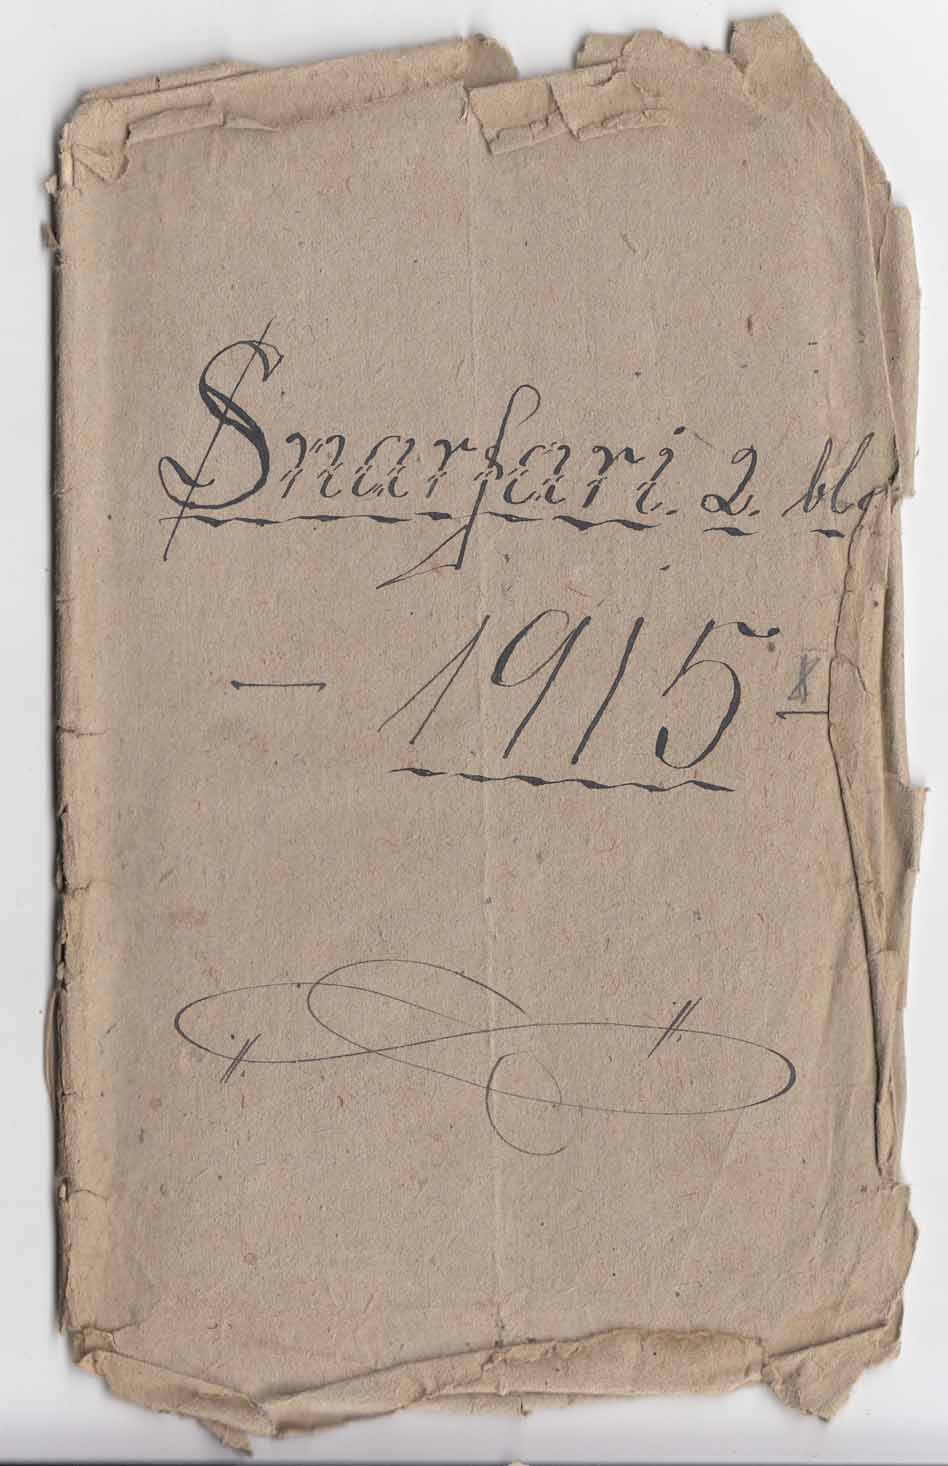 Snarfari. 2. bl.
— 1915 —